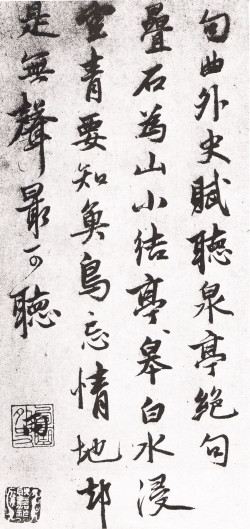 句曲外史賦聽泉亭絕句
疊石為山小結亭皋白水浸
空青要知魚鳥忘情地却
是無聲最可聽